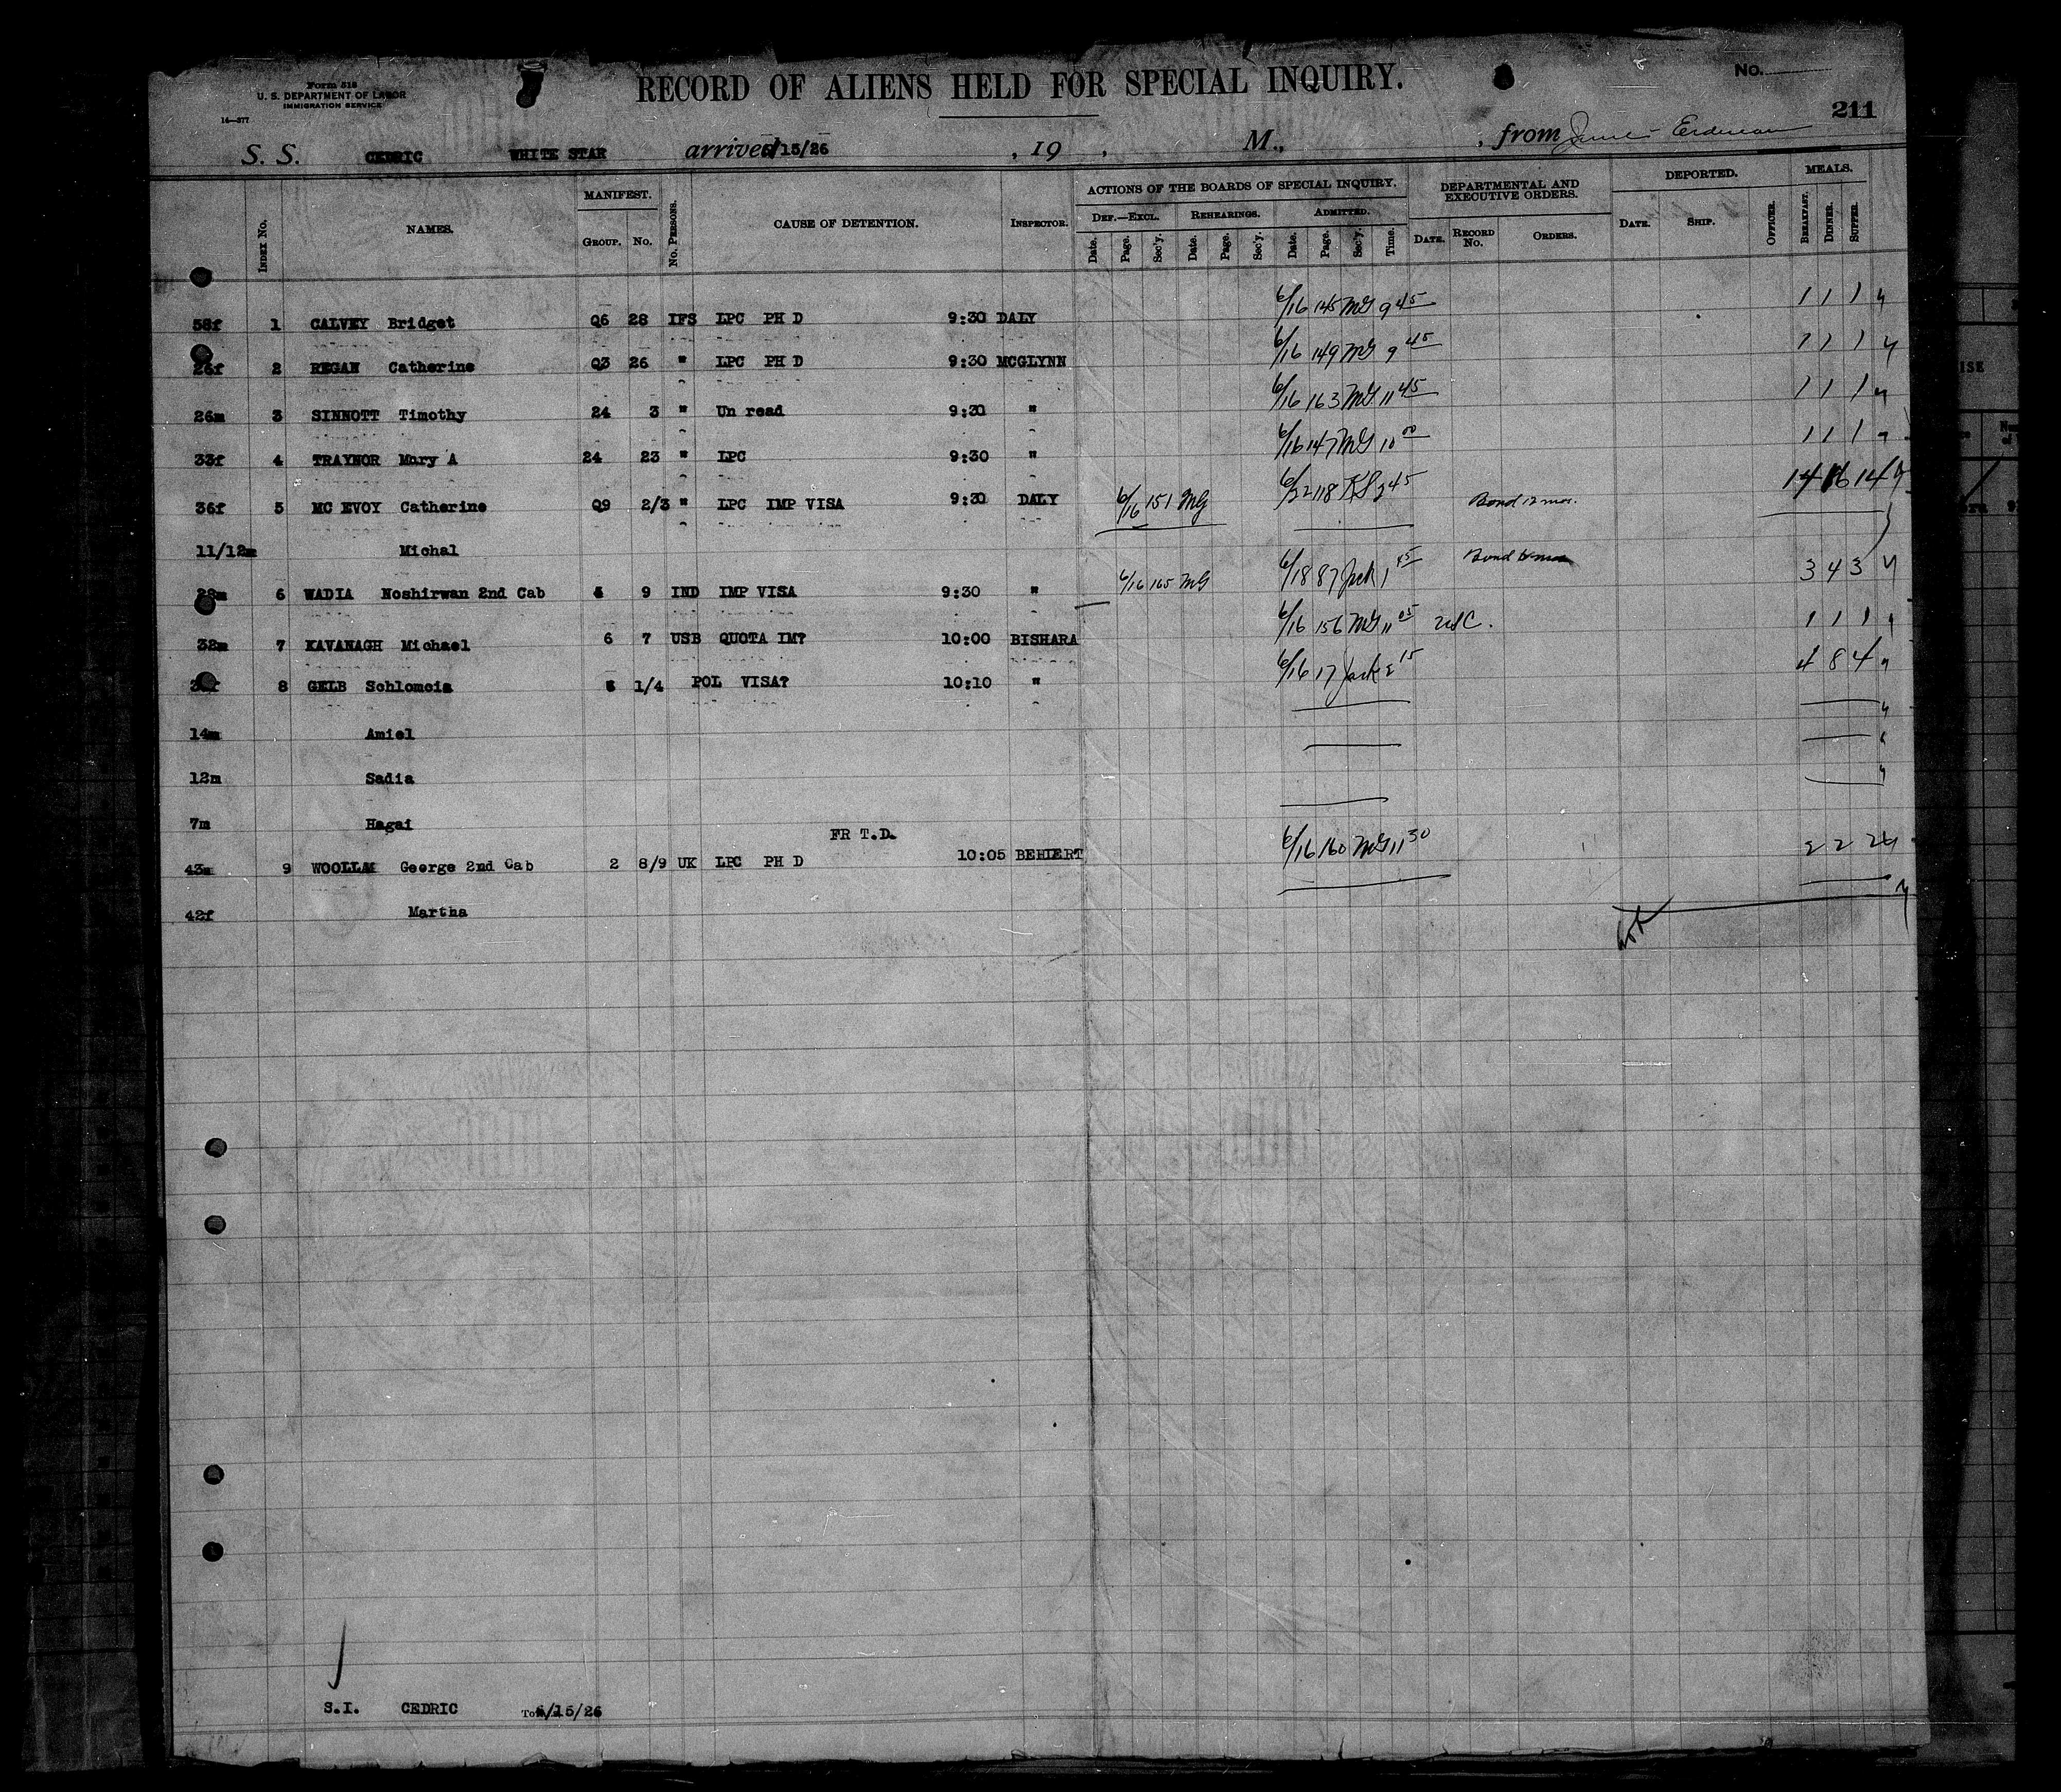 Form 518
U. S. DEPARTMENT OF LABOR
IMMIGRATION SERVICE
14—377
RECORD OF ALIENS HELD FOR SPECIAL INQUIRY.
No.
211
S. S. CEDRIC WHITE STAR arrived 6/15/26 , 19 , M., , from
INDEX No. NAMES. MANIFEST. GROUP. No. No. PERSONS. CAUSE OF DETENTION. INSPECTOR. ACTIONS OF THE BOARDS OF SPECIAL INQUIRY. DEF.—EXCL. REHEARINGS. ADMITTED. Date. Page. Sec'y. Date. Page. Sec'y. Date. Page. Sec'y. Time. DEPARTMENTAL AND EXECUTIVE ORDERS. DATE. RECORD No. ORDERS. DEPORTED. DATE. SHIP. OFFICER. MEALS. BREAKFAST. DINNER. SUPPER.
58f 1 CALVEY Bridget Q6 28 IFS LPC PH D 9:30 DALY 6/16 145 MG 9 45 1 1 1
26f 2 REGAN Catherine Q3 26 " LPC PH D 9:30 MCGLYNN 6/16 149 MG 9 45 1 1 1
26m 3 SINNOTT Timothy 24 3 " Un read 9:30 " 6/16 163 MG 11 45 1 1 1
33f 4 TRAYNOR Mary A 24 23 " LPC 9:30 " 6/16 147 MG 10 00 1 1 1
36f 5 MC EVOY Catherine Q9 2/3 " LPC IMP VISA 9:30 DALY 6/16 151 MG 6/22 118 2 45 Bond 12 mos. 14 16 14
11/12m Michal
28m 6 WADIA Noshirwan 2nd Cab 9 IND IMP VISA 9:30 " 6/16 165 MG 6/18 87 Jack 1 45 Bond 3 4 3
32m 7 KAVANAGH Michael 6 7 USB QUOTA IM? 10:00 BISHARA 6/16 156 MG 11 05 1 1 1
8 GELB Schlomcia 1/4 POL VISA? 10:10 " 6/16 17 Jack 2 15 4 8 4
14m Amiel
12m Sadia
7m Hagai
FR T.D.
43m 9 WOOLLAM George 2nd Cab 2 8/9 UK LPC PH D 10:05 BEHLERT 6/16 160 MG 11 30 2 2 2
42f Martha
S.I. CEDRIC 6/15/26